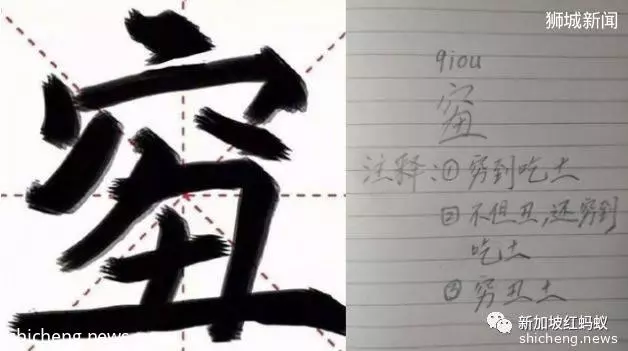 狮城新闻
qiou
注释:①穷到吃土
②不但丑,还穷到
吃土
③穷丑土
新加坡红蚂蚁
shicheng.news
shicheng.news